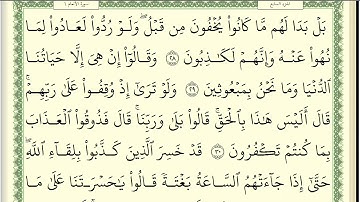 سورة الأنعام ٦
الجزء السابع
بَلْ بَدَا لَهُم مَّا كَانُوا۟ يُخْفُونَ مِن قَبْلُ ۖ وَلَوْ رُدُّوا۟ لَعَادُوا۟ لِمَا
نُهُوا۟ عَنْهُ وَإِنَّهُمْ لَكَـٰذِبُونَ ٢٨ وَقَالُوٓا۟ إِنْ هِىَ إِلَّا حَيَاتُنَا
ٱلدُّنْيَا وَمَا نَحْنُ بِمَبْعُوثِينَ ٢٩ وَلَوْ تَرَىٰٓ إِذْ وُقِفُوا۟ عَلَىٰ رَبِّهِمْ ۚ
قَالَ أَلَيْسَ هَـٰذَا بِٱلْحَقِّ ۚ قَالُوا۟ بَلَىٰ وَرَبِّنَا ۚ قَالَ فَذُوقُوا۟ ٱلْعَذَابَ
بِمَا كُنتُمْ تَكْفُرُونَ ٣٠ قَدْ خَسِرَ ٱلَّذِينَ كَذَّبُوا۟ بِلِقَآءِ ٱللَّهِ ۖ
حَتَّىٰٓ إِذَا جَآءَتْهُمُ ٱلسَّاعَةُ بَغْتَةً قَالُوا۟ يَـٰحَسْرَتَنَا عَلَىٰ مَا